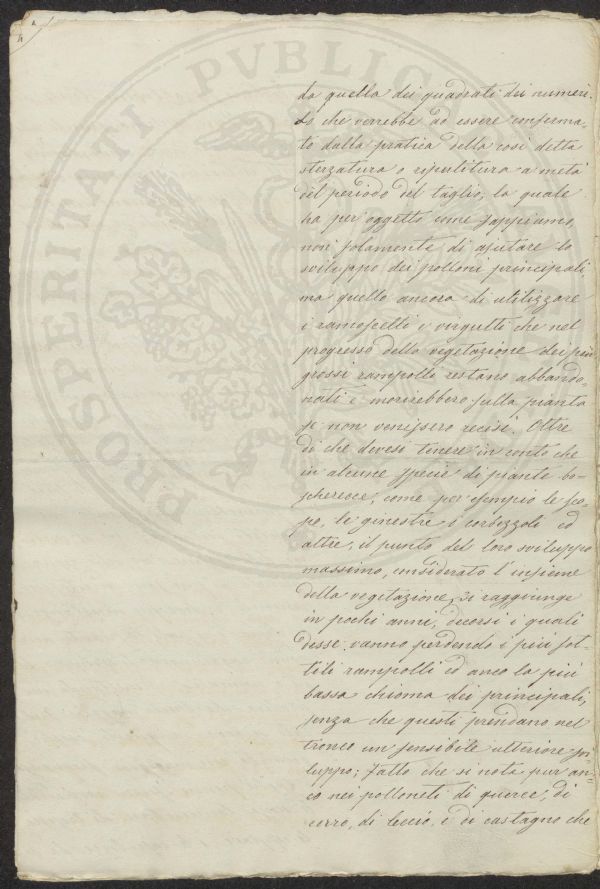 PROSPERITATI PVBLICAE
da quella dei quadrati dei numeri.
Lo che verrebbe ad essere conferma-
to dalla pratica della così detta
sterzatura o ripulitura a metà
del periodo del taglio, la quale
ha per oggetto come sappiamo,
non solamente di ajutare lo
sviluppo dei polloni principali
ma quello ancora di utilizzare
i ramoscelli e virgulti che nel
progresso della vegetazione dei più
grossi rampolli restano abbando-
nati e morirebbero sulla pianta
se non venissero recisi. Oltre
di che devesi tenere in conto che
in alcune specie di piante bo-
schereccie, come per esempio le sco-
pe, le ginestre i corbezzoli ed
altre, il punto del loro sviluppo
massimo, considerato l'insieme
della vegetazione, si raggiunge
in pochi anni, decorsi i quali
desse vanno perdendo i più sot-
tili rampolli ed anco la più
bassa chioma dei principali,
senza che questi prendano nel
tronco un sensibile ulteriore svi-
luppo; fatto che si nota pur an-
co nei polloneti di querce, di
cerro, di leccio, e di castagno che